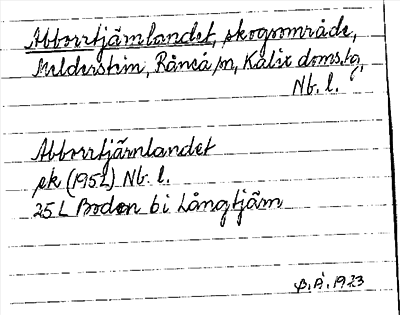 Abborrtjärnlandet, skogsområde,
Melderstein, Råneå sn, Kalix doms.lg,
Nb. l.
Abborrtjärnlandet
sk (1952) Nb. l.
25 L Boden 6 i Långtjärn
1923